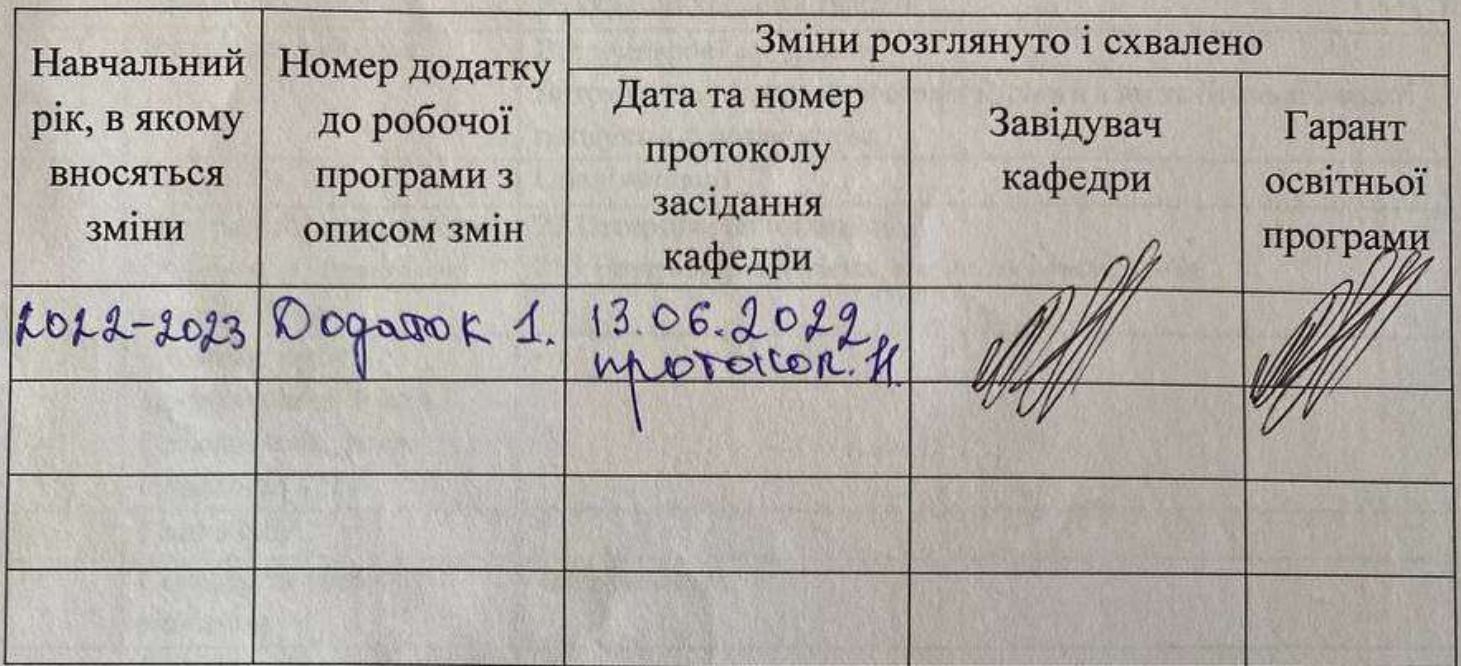 Навчальний
рік, в якому
вносяться
зміни
Номер додатку
до робочої
програми з
описом змін
Зміни розглянуто і схвалено
Дата та номер
протоколу
засідання
кафедри
Завідувач
кафедри
Гарант
освітньої
програми
2022-2023
Додаток 1.
13.06.2022
протокол.